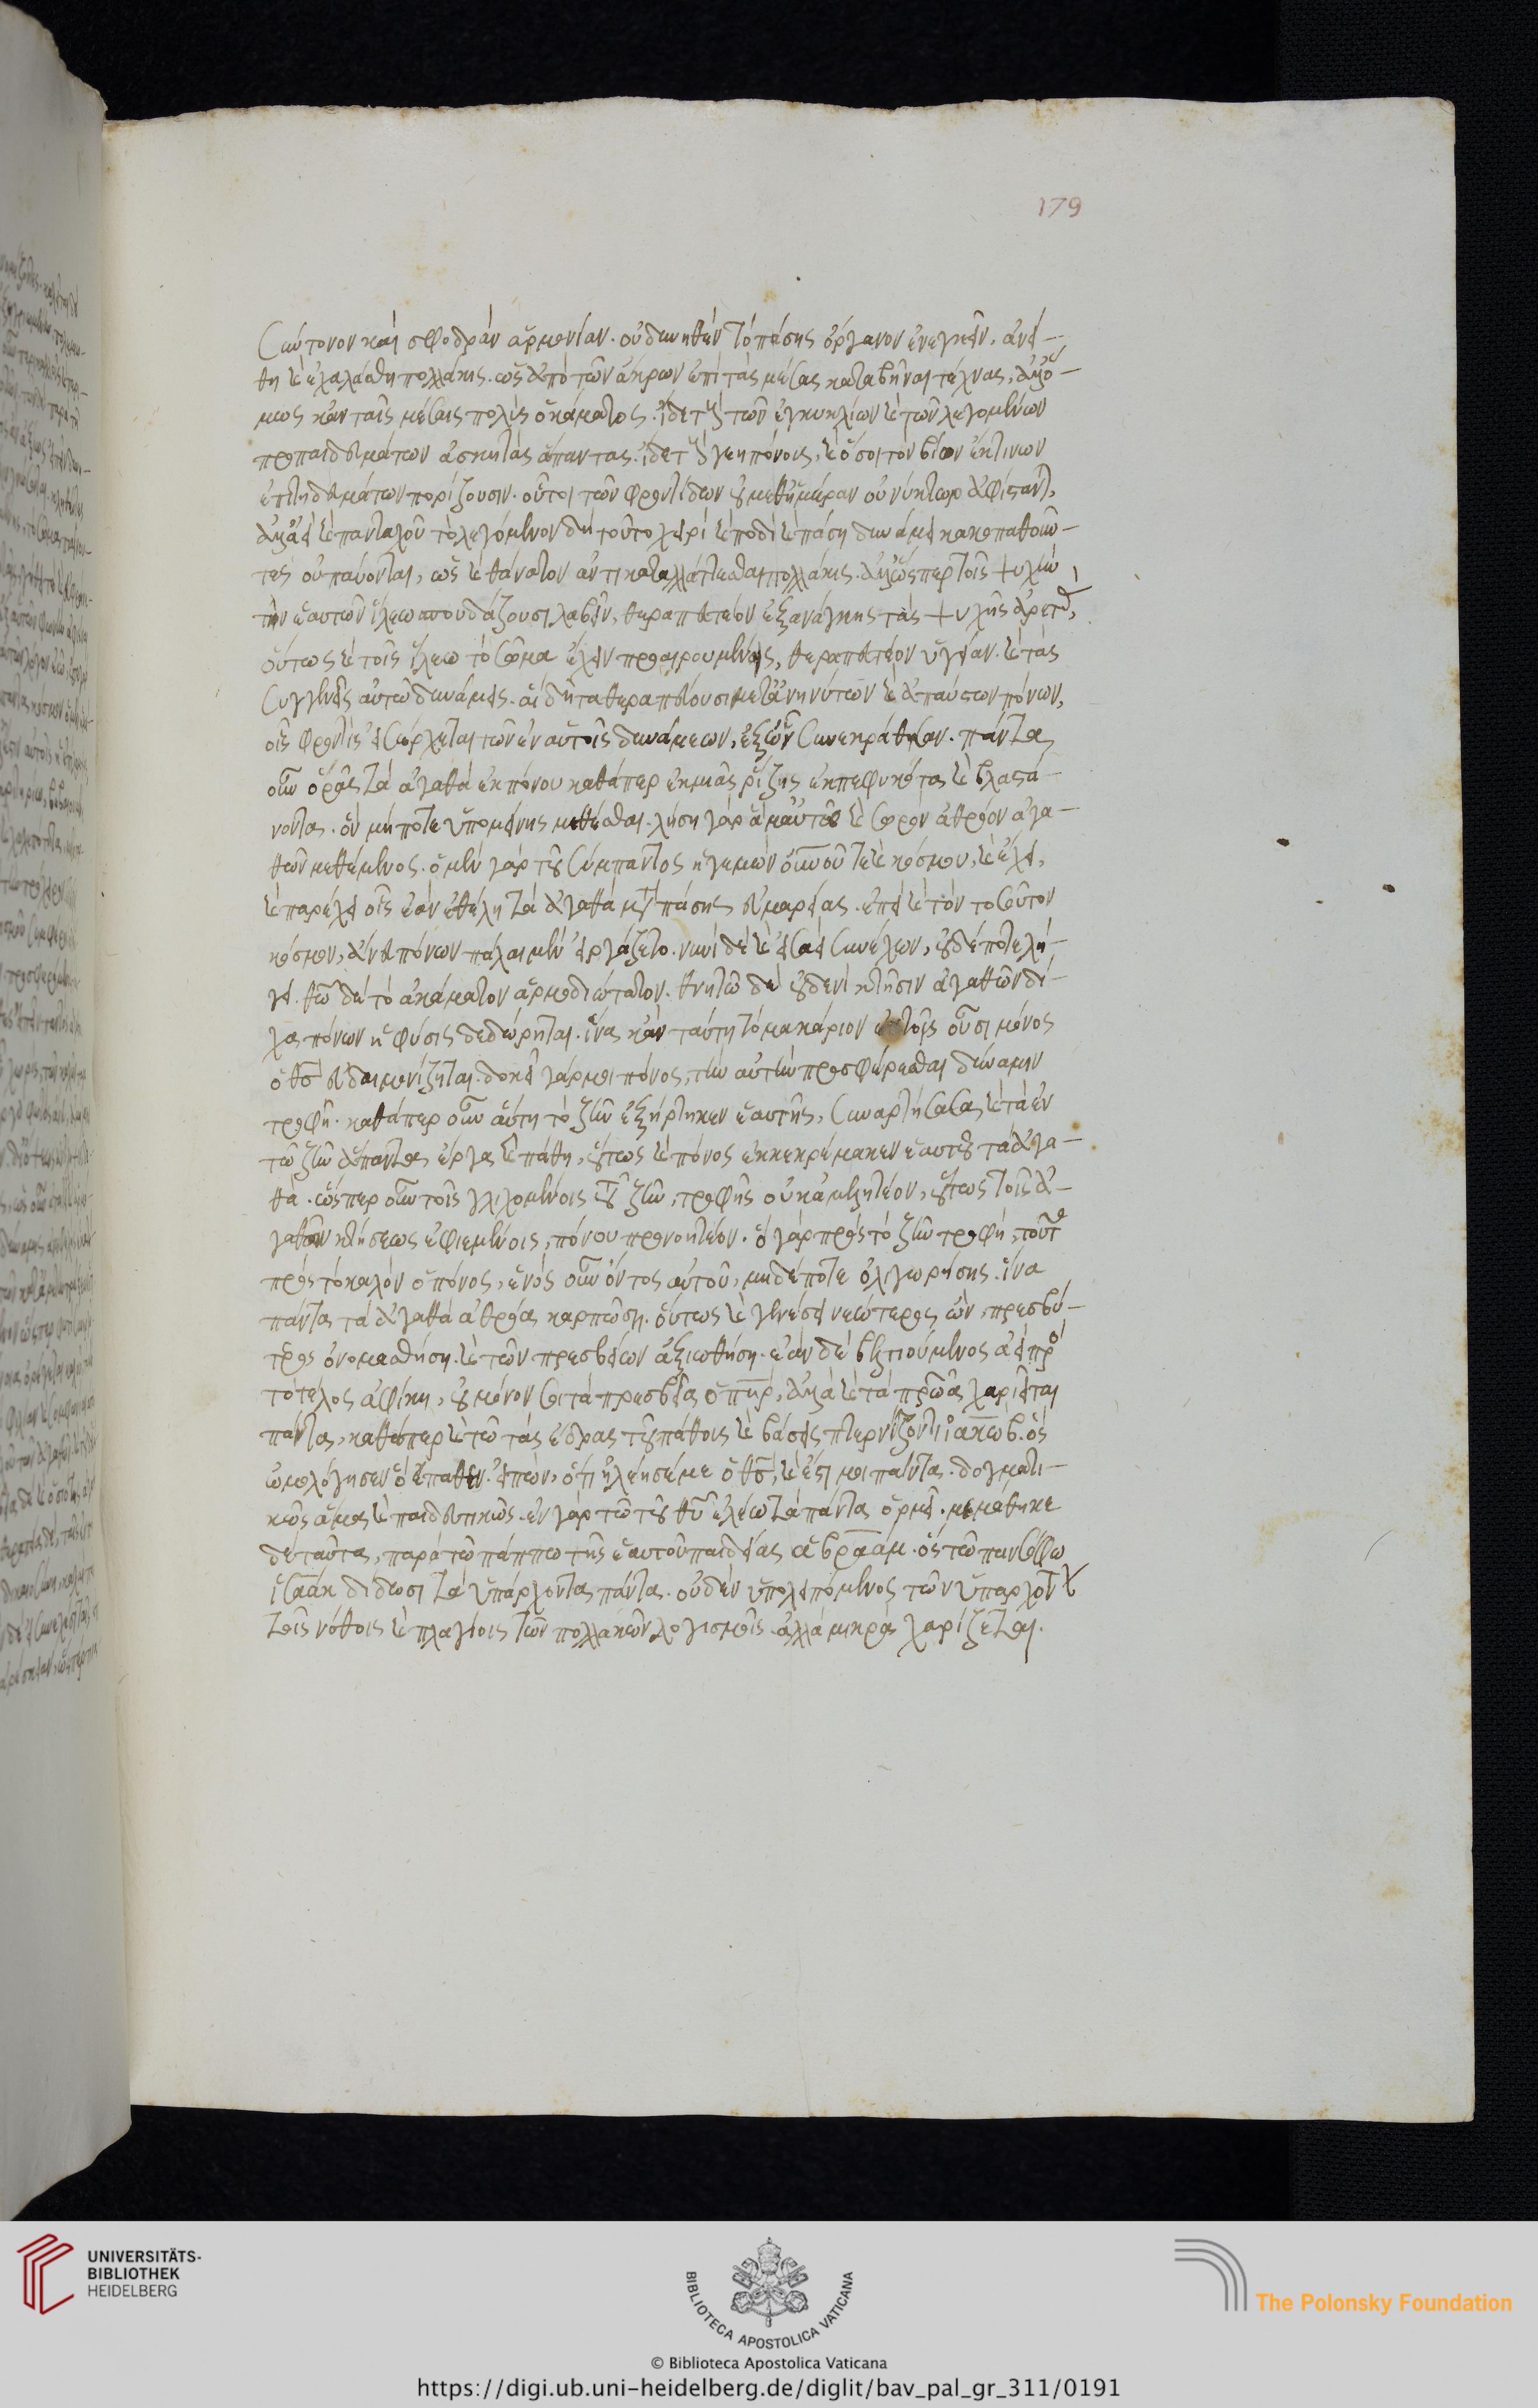 179
σύντονον καὶ σφοδρὰν ἁρμονίαν. οὐ δυνηθὲν τὸ πάσης ὄργανον ἐνεγκεῖν, ἀνεί-
θη καὶ ἐχαλάσθη πολλάκις. ὡς ἀπὸ τῶν ἄκρων ἐπὶ τὰς μέσας καταβῆναι τέχνας, ἀλλ' ὅ-
μως κἀν ταῖς μέσαις πολὺς ὁ κάματος. ἴδε τοὺς τῶν ἐγκυκλίων καὶ τῶν λεγομένων
προπαιδευμάτων ἀσκητὰς ἅπαντας. ἴδε τοὺς γηπόνους, καὶ ὅσοι τὸν βίον ἔκ τινων
ἐπιτηδευμάτων πορίζουσιν. οὗτοι τῶν φροντίδων οὐ μεθ' ἡμέραν οὐ νύκτωρ ἀφίσταντ,
ἀλλ' ἀεὶ καὶ πανταχοῦ τὸ λεγόμενον δὴ τοῦτο χειρὶ καὶ ποδὶ καὶ πάσῃ δυνάμει κακοπαθοῦν-
τες οὐ παύονται, ὡς καὶ θάνατον ἀντικαταλλάττεσθαι πολλάκις. ἀλλ' ὥσπερ τοῖς ψυχὴν
τὴν ἑαυτῶν ἵλεω σπουδάζουσι λαβεῖν, θεραπευτέον ἐξανάγκης τὰς ψυχῆς ἀρετὰς,
οὕτως καὶ τοῖς ἵλεω τὸ σῶμα ἔχειν προαιρουμένοις, θεραπευτέον ὑγείαν. καὶ τὰς
συγγενεῖς αὐτῶ δυνάμεις. ἃς δῆτα θεραπεύουσι μετ' ἀνηνύτων καὶ ἀπαύστων πόνων,
οἷς φροντὶς εἰσέρχεται τῶν ἐν αὐτοῖς δυνάμεων, ἐξ ὧν συνεκράθησαν. πάντα
οὖν ὁρᾷς τὰ ἀγαθὰ ἐκ πόνου καθάπερ ἐκ μιᾶς ῥίζης ἐκπεφυκότα καὶ βλαστά-
νοντα. ὃν μήποτε ὑπομείνῃς μεθέσθαι. λήσῃ γὰρ ἅμ' αὐτῶ καὶ σωρὸν ἀθρόον ἀγα-
θῶν μεθέμενος. ὁ μὲν γὰρ τοῦ σύμπαντος ἡγεμὼν οὐρανοῦ τε καὶ κόσμου, καὶ ἔχει,
καὶ παρέχει οἷς ἐὰν ἐθέλῃ τὰ ἀγαθὰ μετὰ πάσης εὐμαρείας. ἐπεὶ καὶ τὸν τοσοῦτον
κόσμον, ἄνευ πόνων πάλαι μὲν εἰργάζετο. νυνὶ δὲ καὶ εἰσαεὶ συνέχων, οὐδέποτε λή-
γει. θῶ δὲ τὸ ἀκάματον ἁρμοδιώτατον. θνητῶ δὲ οὐδενὶ κτῆσιν ἀγαθῶν δί-
χα πόνων ἡ φύσις δεδώρηται. ἵνα κἂν ταύτῃ τὸ μακάριον ἐν τοῖς οὖσι μόνος
ὁ θς εὐδαιμονίζηται. δοκεῖ γάρ μοι πόνος, τὴν αὐτὴν προσφέρεσθαι δύναμιν
τροφῆ. καθάπερ οὖν αὕτη τὸ ζῆν ἐξήρτηκεν ἑαυτῆς, συναρτήσασα καὶ τὰ ἐν
τῶ ζῆν ἅπαντα, ἔργα καὶ πάθη, οὕτως καὶ πόνος ἐκκεκρέμακεν ἑαυτοῦ τὰ ἀγα-
θά. ὥσπερ οὖν τοῖς γλιχομένοις τοῦ ζῆν, τροφῆς οὐκ ἀμελητέον, οὕτως τοῖς ἀ-
γαθῶν κτήσεως ἐφιεμένοις, πόνου προνοητέον. ὃ γὰρ πρὸς τὸ ζῆν τροφὴ, τοῦτο
πρὸς τὸ καλὸν ὁ πόνος, ἑνὸς οὖν ὄντος αὐτοῦ, μηδέποτε ὀλιγωρήσῃς. ἵνα
πάντα τὰ ἀγαθὰ ἀθρόα καρπώσῃ. οὕτως καὶ γενέσει νεώτερος ὢν, πρεσβύ-
τερος ὀνομασθήσῃ. καὶ τῶν πρεσβείων ἀξιωθήσῃ. ἐὰν δὲ βελτιούμενος ἀεὶ πρὸς
τὸ τέλος ἀφίκῃ, οὐ μόνον σοι τὰ πρεσβεῖα ὁ πηρ, ἀλλὰ καὶ τὰ πρῶα χαριεῖται
πάντα, καθάπερ καὶ τῶ τὰς ἕδρας τοῦ πάθους καὶ βάσεις πτερνίζοντι ἰακώβ. ὃς
ὡμολόγησεν ὃ ἔπαθεν. εἰπὼν, ὅτι ἠλέησέ με ὁ θς, καὶ ἔστι μοι πάντα. δογματι-
κῶς ἅμα καὶ παιδευτικῶς. ἐν γὰρ τῶ τοῦ θυ ἐλέω τὰ πάντα ὁρμεῖ. μεμάθηκε
δὲ ταῦτα, παρὰ τῶ πάππω τῆς ἑαυτοῦ παιδείας ἀβραάμ. ὃς τῶ πανσόφω
ἰσαὰκ δίδωσι τὰ ὑπάρχοντα πάντα. οὐδὲν ὑπολειπόμενος τῶν ὑπαρχόντων
τοῖς νόθοις καὶ πλαγίοις τῶν παλλακῶν λογισμοῖς. ἀλλὰ μικρὰ χαρίζεται.
UNIVERSITÄTS-
BIBLIOTHEK
HEIDELBERG
BIBLIOTECA APOSTOLICA VATICANA
The Polonsky Foundation
© Biblioteca Apostolica Vaticana
https://digi.ub.uni-heidelberg.de/diglit/bav_pal_gr_311/0191